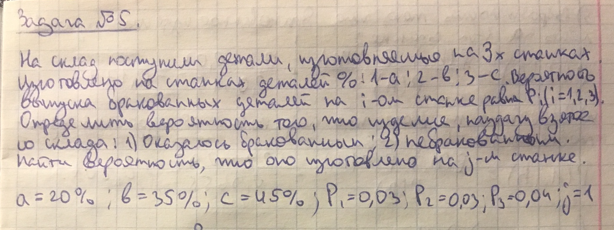 Задача №5.
На склад поступили детали, изготовляемые на 3х станках
Изготовлено на станках деталей %: 1-а; 2-в; 3-с. Вероятность
выпуска бракованных деталей на i-ом станке равна Pi (i=1,2,3).
Определить вероятность того, что изделие, наудачу взятое
со склада: 1) Оказалось бракованным; 2) небракованным.
Найти вероятность, что оно изготовлено на j-м станке.
a = 20%; в = 35%; с = 45%; P₁=0,03; P₂=0,03; P₃=0,04; j=1